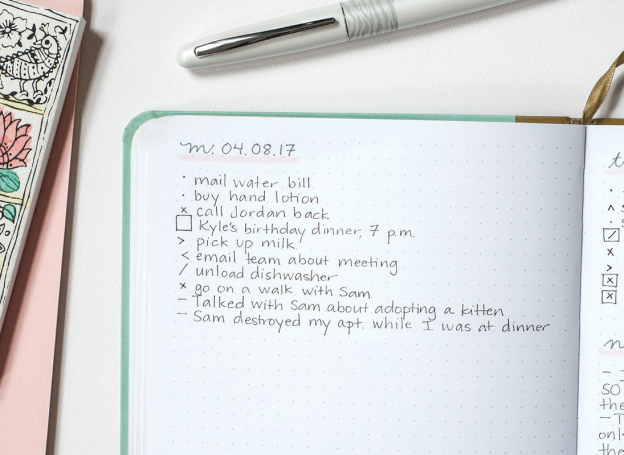 m. 04.08.17
· mail water bill
· buy hand lotion
x call Jordan back
□ Kyle's birthday dinner, 7 p.m.
> pick up milk
< email team about meeting
/ unload dishwasher
x go on a walk with Sam
— Talked with Sam about adopting a kitten
— Sam destroyed my apt. while I was at dinner
SO
the
— T
only
the